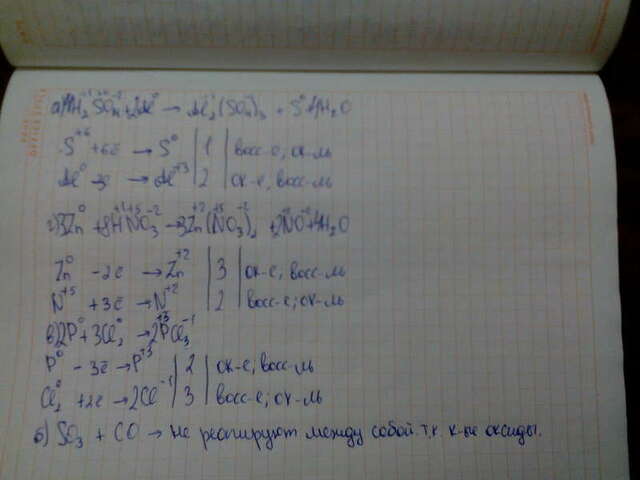 а) 4H₂⁺¹S⁺⁶O₄⁻² + 2Al⁰ → Al₂⁺³(SO₄)₃ + S⁰ + 4H₂O
S⁺⁶ + 6ē → S⁰ | 1 | восс-е; ок-ль
Al⁰ - 3ē → Al⁺³ | 2 | ок-е, восс-ль
г) 3Zn⁰ + 8H⁺¹N⁺⁵O₃⁻² → 3Zn⁺²(N⁺⁵O₃⁻²)₂ + 2N⁺²O⁻² + 4H₂O
Zn⁰ - 2ē → Zn⁺² | 3 | ок-е, восс-ль
N⁺⁵ + 3ē → N⁺² | 2 | восс-е; ок-ль
в) 2P⁰ + 3Cl₂⁰ → 2P⁺³Cl₃⁻¹
P⁰ - 3ē → P⁺³ | 2 | ок-е; восс-ль
Cl₂⁰ + 2ē → 2Cl⁻¹ | 3 | восс-е; ок-ль
б) SO₃ + CO → не реагируют между собой т.к. к-ые оксиды.